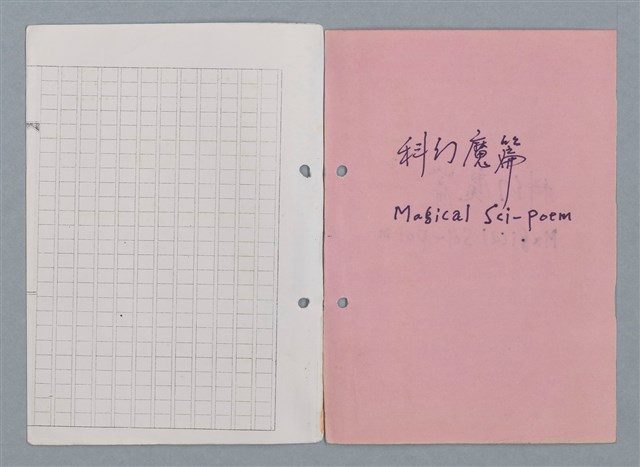 科幻魔篇
Magical Sci-poem